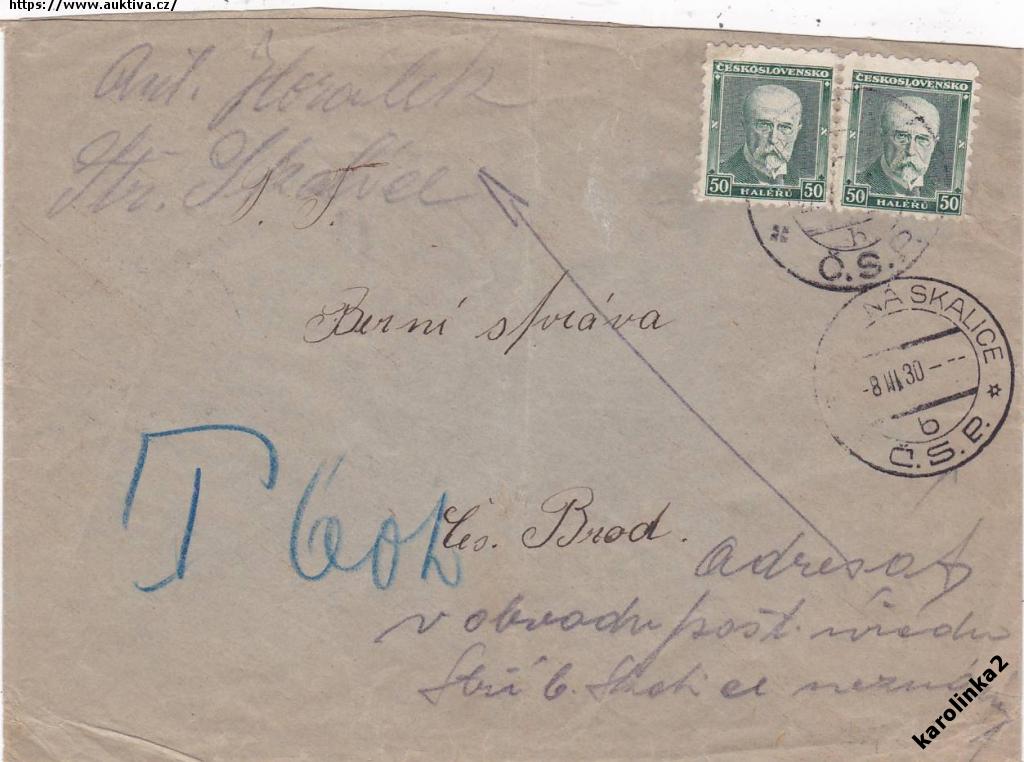 https://www.auktiva.cz/
Ant. Horalek
Stř. Skalice
ČESKOSLOVENSKO
50 HALÉŘŮ 50
ČESKOSLOVENSKO
50 HALÉŘŮ 50
Č.S.P.
b
NÁ SKALICE
-8 III 30
b
Č.S.P.
Berní správa
T 60h
Čes. Brod.
adresát
v obvodu pošt. úřadu
Stříb. Skalice
karolinka2